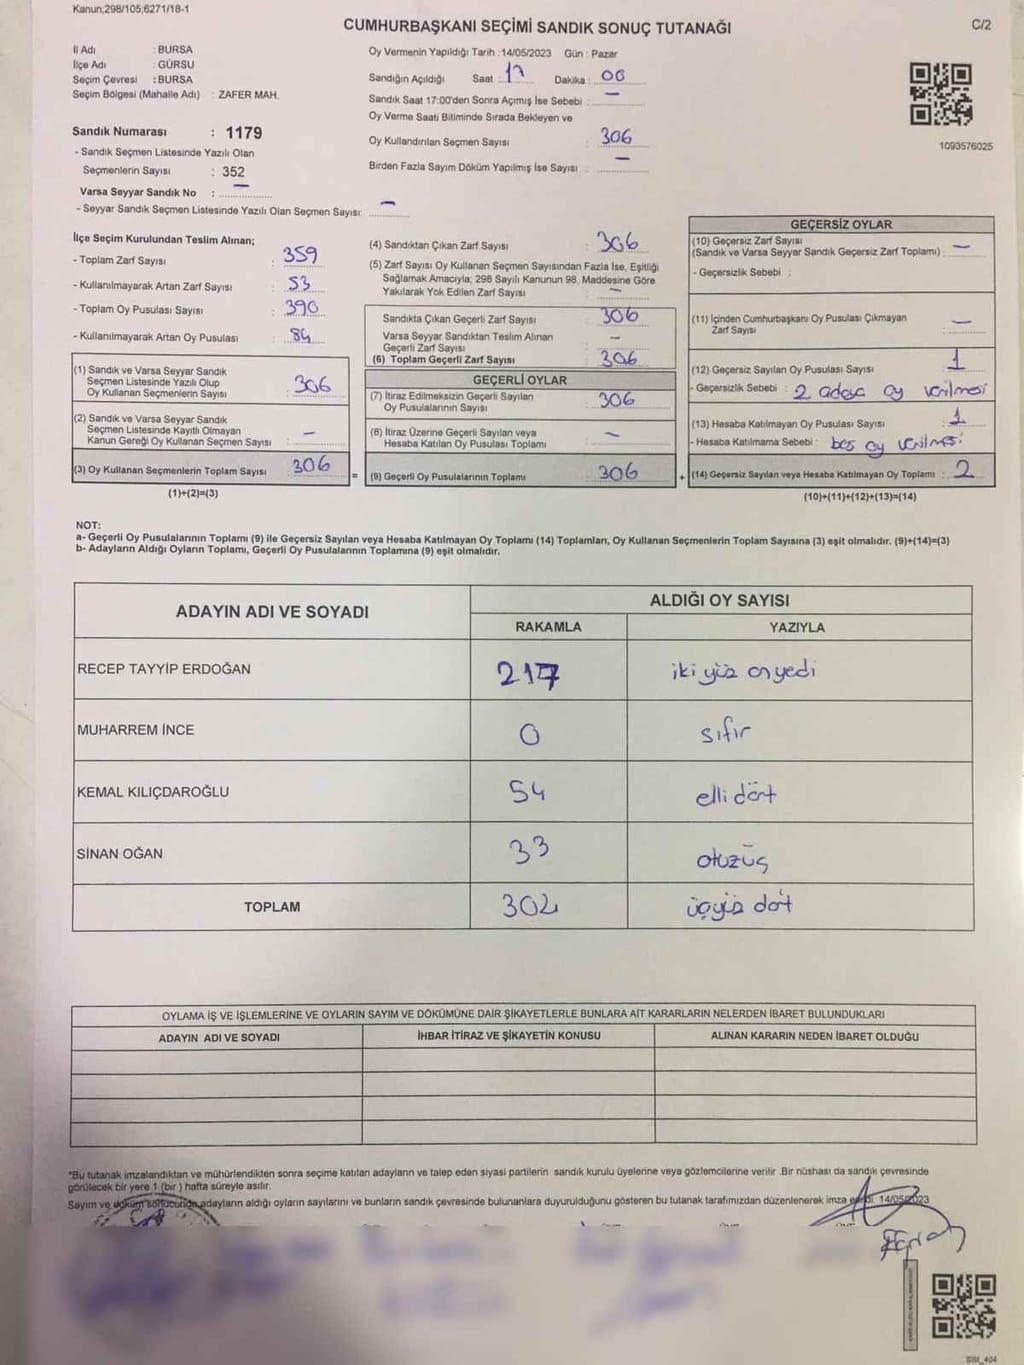 Kanun;298/105;6271/18-1
CUMHURBAŞKANI SEÇİMİ SANDIK SONUÇ TUTANAĞI
C/2
İl Adı : BURSA
İlçe Adı : GÜRSU
Seçim Çevresi : BURSA
Seçim Bölgesi (Mahalle Adı) : ZAFER MAH.
Oy Vermenin Yapıldığı Tarih : 14/05/2023 Gün : Pazar
Sandığın Açıldığı Saat : 17 Dakika : 00
Sandık Saat 17:00'den Sonra Açımış İse Sebebi : —
Oy Verme Saati Bitiminde Sırada Bekleyen ve
Oy Kullandırılan Seçmen Sayısı : 306
Birden Fazla Sayım Döküm Yapılmış İse Sayısı : —
1093576025
Sandık Numarası : 1179
- Sandık Seçmen Listesinde Yazılı Olan
Seçmenlerin Sayısı : 352
Varsa Seyyar Sandık No : —
- Seyyar Sandık Seçmen Listesinde Yazılı Olan Seçmen Sayısı: —
İlçe Seçim Kurulundan Teslim Alınan;
- Toplam Zarf Sayısı : 359
- Kullanılmayarak Artan Zarf Sayısı : 53
- Toplam Oy Pusulası Sayısı : 390
- Kullanılmayarak Artan Oy Pusulası : 84
(1) Sandık ve Varsa Seyyar Sandık
Seçmen Listesinde Yazılı Olup
Oy Kullanan Seçmenlerin Sayısı : 306
(2) Sandık ve Varsa Seyyar Sandık
Seçmen Listesinde Kayıtlı Olmayan
Kanun Gereği Oy Kullanan Seçmen Sayısı : —
(3) Oy Kullanan Seçmenlerin Toplam Sayısı : 306
(1)+(2)=(3)
(4) Sandıktan Çıkan Zarf Sayısı : 306
(5) Zarf Sayısı Oy Kullanan Seçmen Sayısından Fazla İse, Eşitliği
Sağlamak Amacıyla; 298 Sayılı Kanunun 98. Maddesine Göre
Yakılarak Yok Edilen Zarf Sayısı : —
Sandıkta Çıkan Geçerli Zarf Sayısı : 306
Varsa Seyyar Sandıktan Teslim Alınan
Geçerli Zarf Sayısı : —
(6) Toplam Geçerli Zarf Sayısı : 306
GEÇERLİ OYLAR
(7) İtiraz Edilmeksizin Geçerli Sayılan
Oy Pusulalarının Sayısı : 306
(8) İtiraz Üzerine Geçerli Sayılan veya
Hesaba Katılan Oy Pusulası Toplamı : —
= (9) Geçerli Oy Pusulalarının Toplamı : 306 +
GEÇERSİZ OYLAR
(10) Geçersiz Zarf Sayısı
(Sandık ve Varsa Seyyar Sandık Geçersiz Zarf Toplamı) : —
- Geçersizlik Sebebi :
(11) İçinden Cumhurbaşkanı Oy Pusulası Çıkmayan
Zarf Sayısı : —
(12) Geçersiz Sayılan Oy Pusulası Sayısı : 1
- Geçersizlik Sebebi : 2 adaya oy verilmesi
(13) Hesaba Katılmayan Oy Pusulası Sayısı : 1
- Hesaba Katılmama Sebebi : boş oy verilmesi
(14) Geçersiz Sayılan veya Hesaba Katılmayan Oy Toplamı : 2
(10)+(11)+(12)+(13)=(14)
NOT:
a- Geçerli Oy Pusulalarının Toplamı (9) ile Geçersiz Sayılan veya Hesaba Katılmayan Oy Toplamı (14) Toplamları, Oy Kullanan Seçmenlerin Toplam Sayısına (3) eşit olmalıdır. (9)+(14)=(3)
b- Adayların Aldığı Oyların Toplamı, Geçerli Oy Pusulalarının Toplamına (9) eşit olmalıdır.
ADAYIN ADI VE SOYADI
ALDIĞI OY SAYISI
RAKAMLA YAZIYLA
RECEP TAYYİP ERDOĞAN 217 iki yüz onyedi
MUHARREM İNCE 0 sıfır
KEMAL KILIÇDAROĞLU 54 elli dört
SİNAN OĞAN 33 otuzüç
TOPLAM 304 üçyüz dört
OYLAMA İŞ VE İŞLEMLERİNE VE OYLARIN SAYIM VE DÖKÜMÜNE DAİR ŞİKAYETLERLE BUNLARA AİT KARARLARIN NELERDEN İBARET BULUNDUKLARI
ADAYIN ADI VE SOYADI İHBAR İTİRAZ VE ŞİKAYETİN KONUSU ALINAN KARARIN NEDEN İBARET OLDUĞU
*Bu tutanak imzalandıktan ve mühürlendikten sonra seçime katılan adayların ve talep eden siyasi partilerin sandık kurulu üyelerine veya gözlemcilerine verilir .Bir nüshası da sandık çevresinde
görülecek bir yere 1 (bir ) hafta süreyle asılır.
Sayım ve döküm sonucunda adayların aldığı oyların sayılarını ve bunların sandık çevresinde bulunanlara duyurulduğunu gösteren bu tutanak tarafımızdan düzenlenerek imza edildi. 14/05/2023